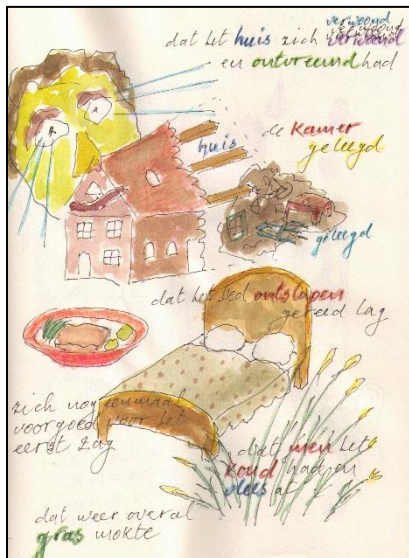 verwoond
dat het huis zich verwoond
en ontvreemd had
huis
de kamer
geleegd
geleegd
dat het bed ontslapen
gereed lag
zich nog eenmaal
voorgoed voor het
eerst zag
dat men het
koud had en
vlees at
dat weer overal
gras wokte